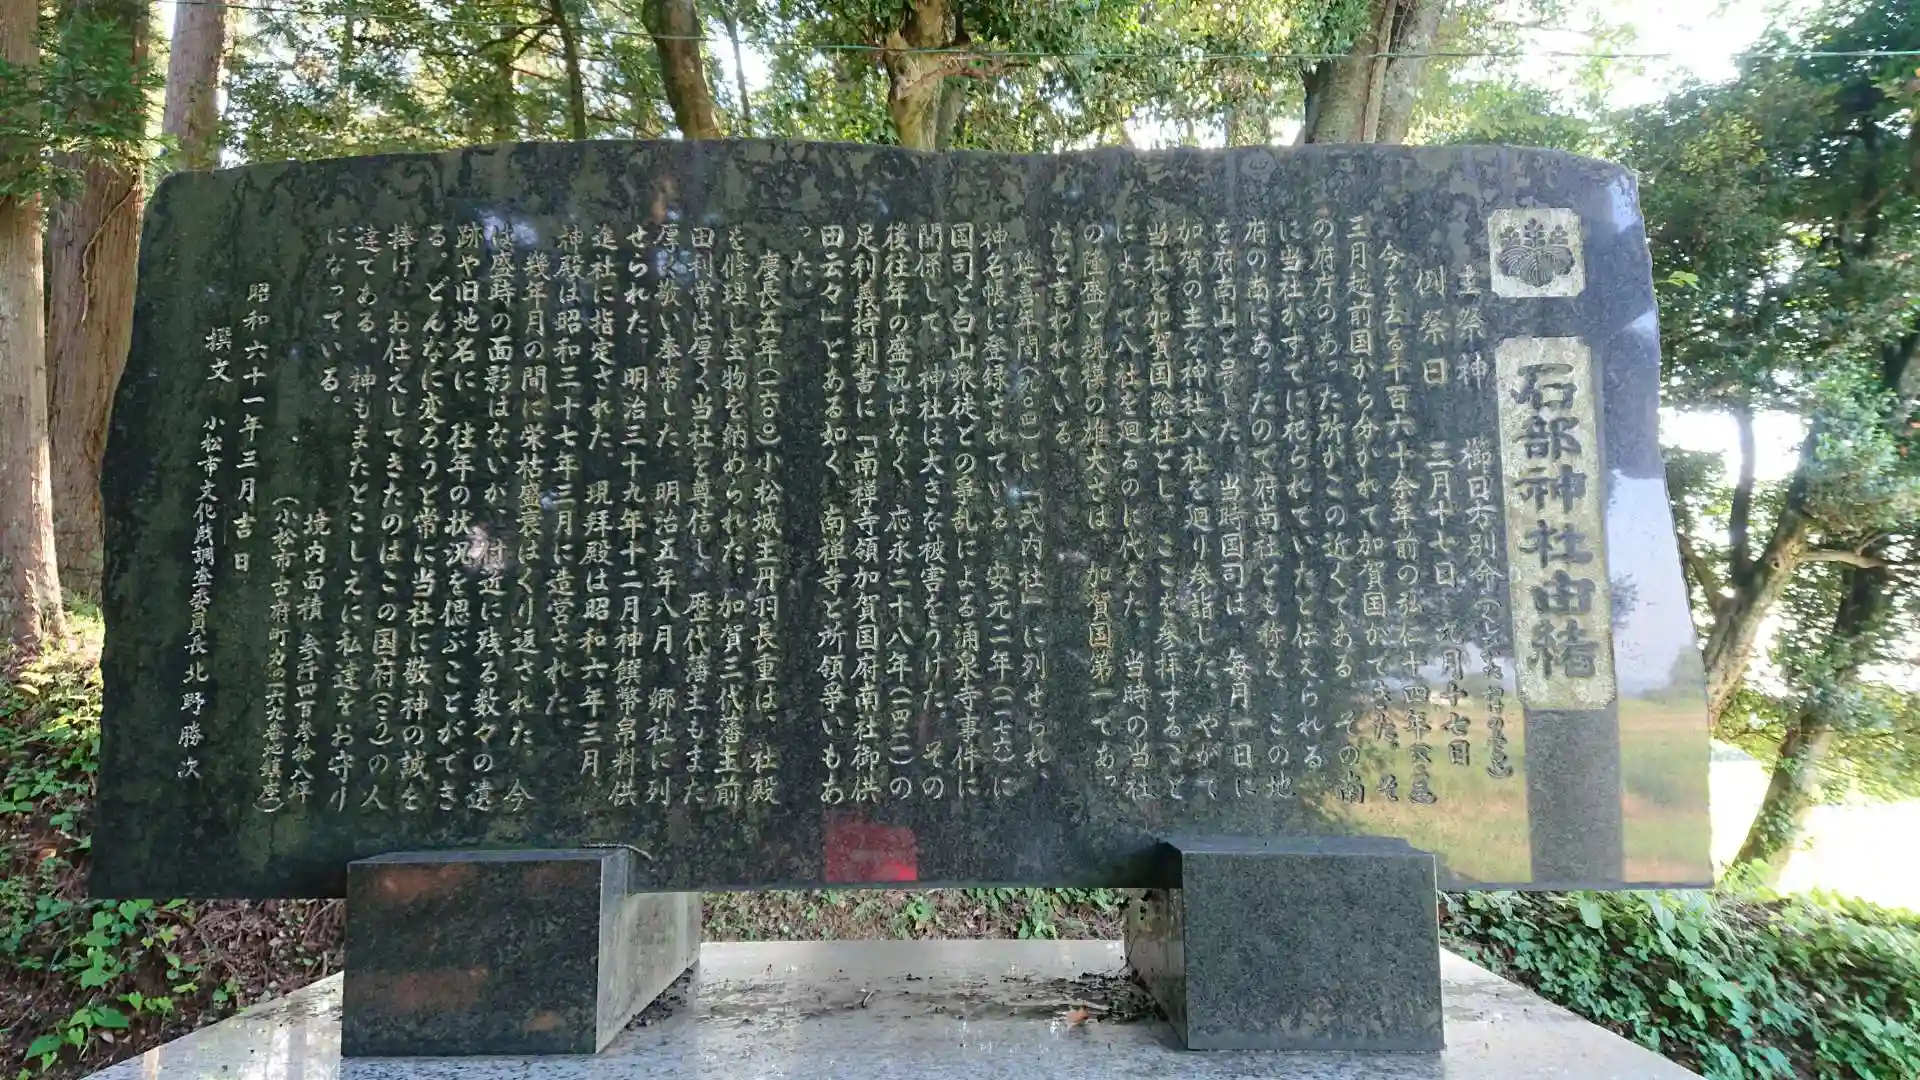 石部神社由緒
主祭神　櫛日方別命(くしひかたわけのみこと)
例祭日　三月十七日　九月十七日
今を去る千百六十余年前の弘仁十四年(八二三)
三月越前国から分かれて加賀国ができた。そ
の府庁のあった所がこの近くである。その南
に当社がすでに祀られていたと伝えられる。
府の南にあったので府南社とも称え、この地
を府南山と号した。当時国司は、毎月一日に
加賀の主な神社八社を廻り参詣した。やがて
当社を加賀国総社とし、ここを参拝すること
によって八社を廻るのに代えた。当時の当社
の隆盛と規模の雄大さは、加賀国第一であっ
たと言われている。
延喜年間(九〇四)に「式内社」に列せられ、
神名帳に登録されている。安元二年(一一七六)に
国司と白山衆徒との争乱による涌泉寺事件に
関係して、神社は大きな被害をうけた。その
後往年の盛況はなく、応永二十八年(一四二一)の
足利義持判書に「南禅寺領加賀国府南社御供
田云々」とある如く、南禅寺と所領争いもあ
った。
慶長五年(一六〇〇)小松城主丹羽長重は、社殿
を修理し宝物を納められた。加賀三代藩主前
田利常は厚く当社を尊信し、歴代藩主もまた
厚く敬い奉幣した。明治五年八月、郷社に列
せられた。明治三十九年十二月神饌幣帛料供
進社に指定された。現拝殿は昭和六年三月
神殿は昭和三十七年三月に造営された。
幾年月の間に栄枯盛衰はくり返された。今
は盛時の面影はないが、付近に残る数々の遺
跡や旧地名に、往年の状況を偲ぶことができ
る。どんなに変ろうと常に当社に敬神の誠を
捧げ、お仕えしてきたのはこの国府(こう)の人
達である。神もまたとこしえに私達をお守り
になっている。
境内面積　参仟四百参拾八坪
(小松市古府町カ一六九番地鎮座)
昭和六十一年三月吉日
撰文　小松市文化財調査委員長　北野勝次